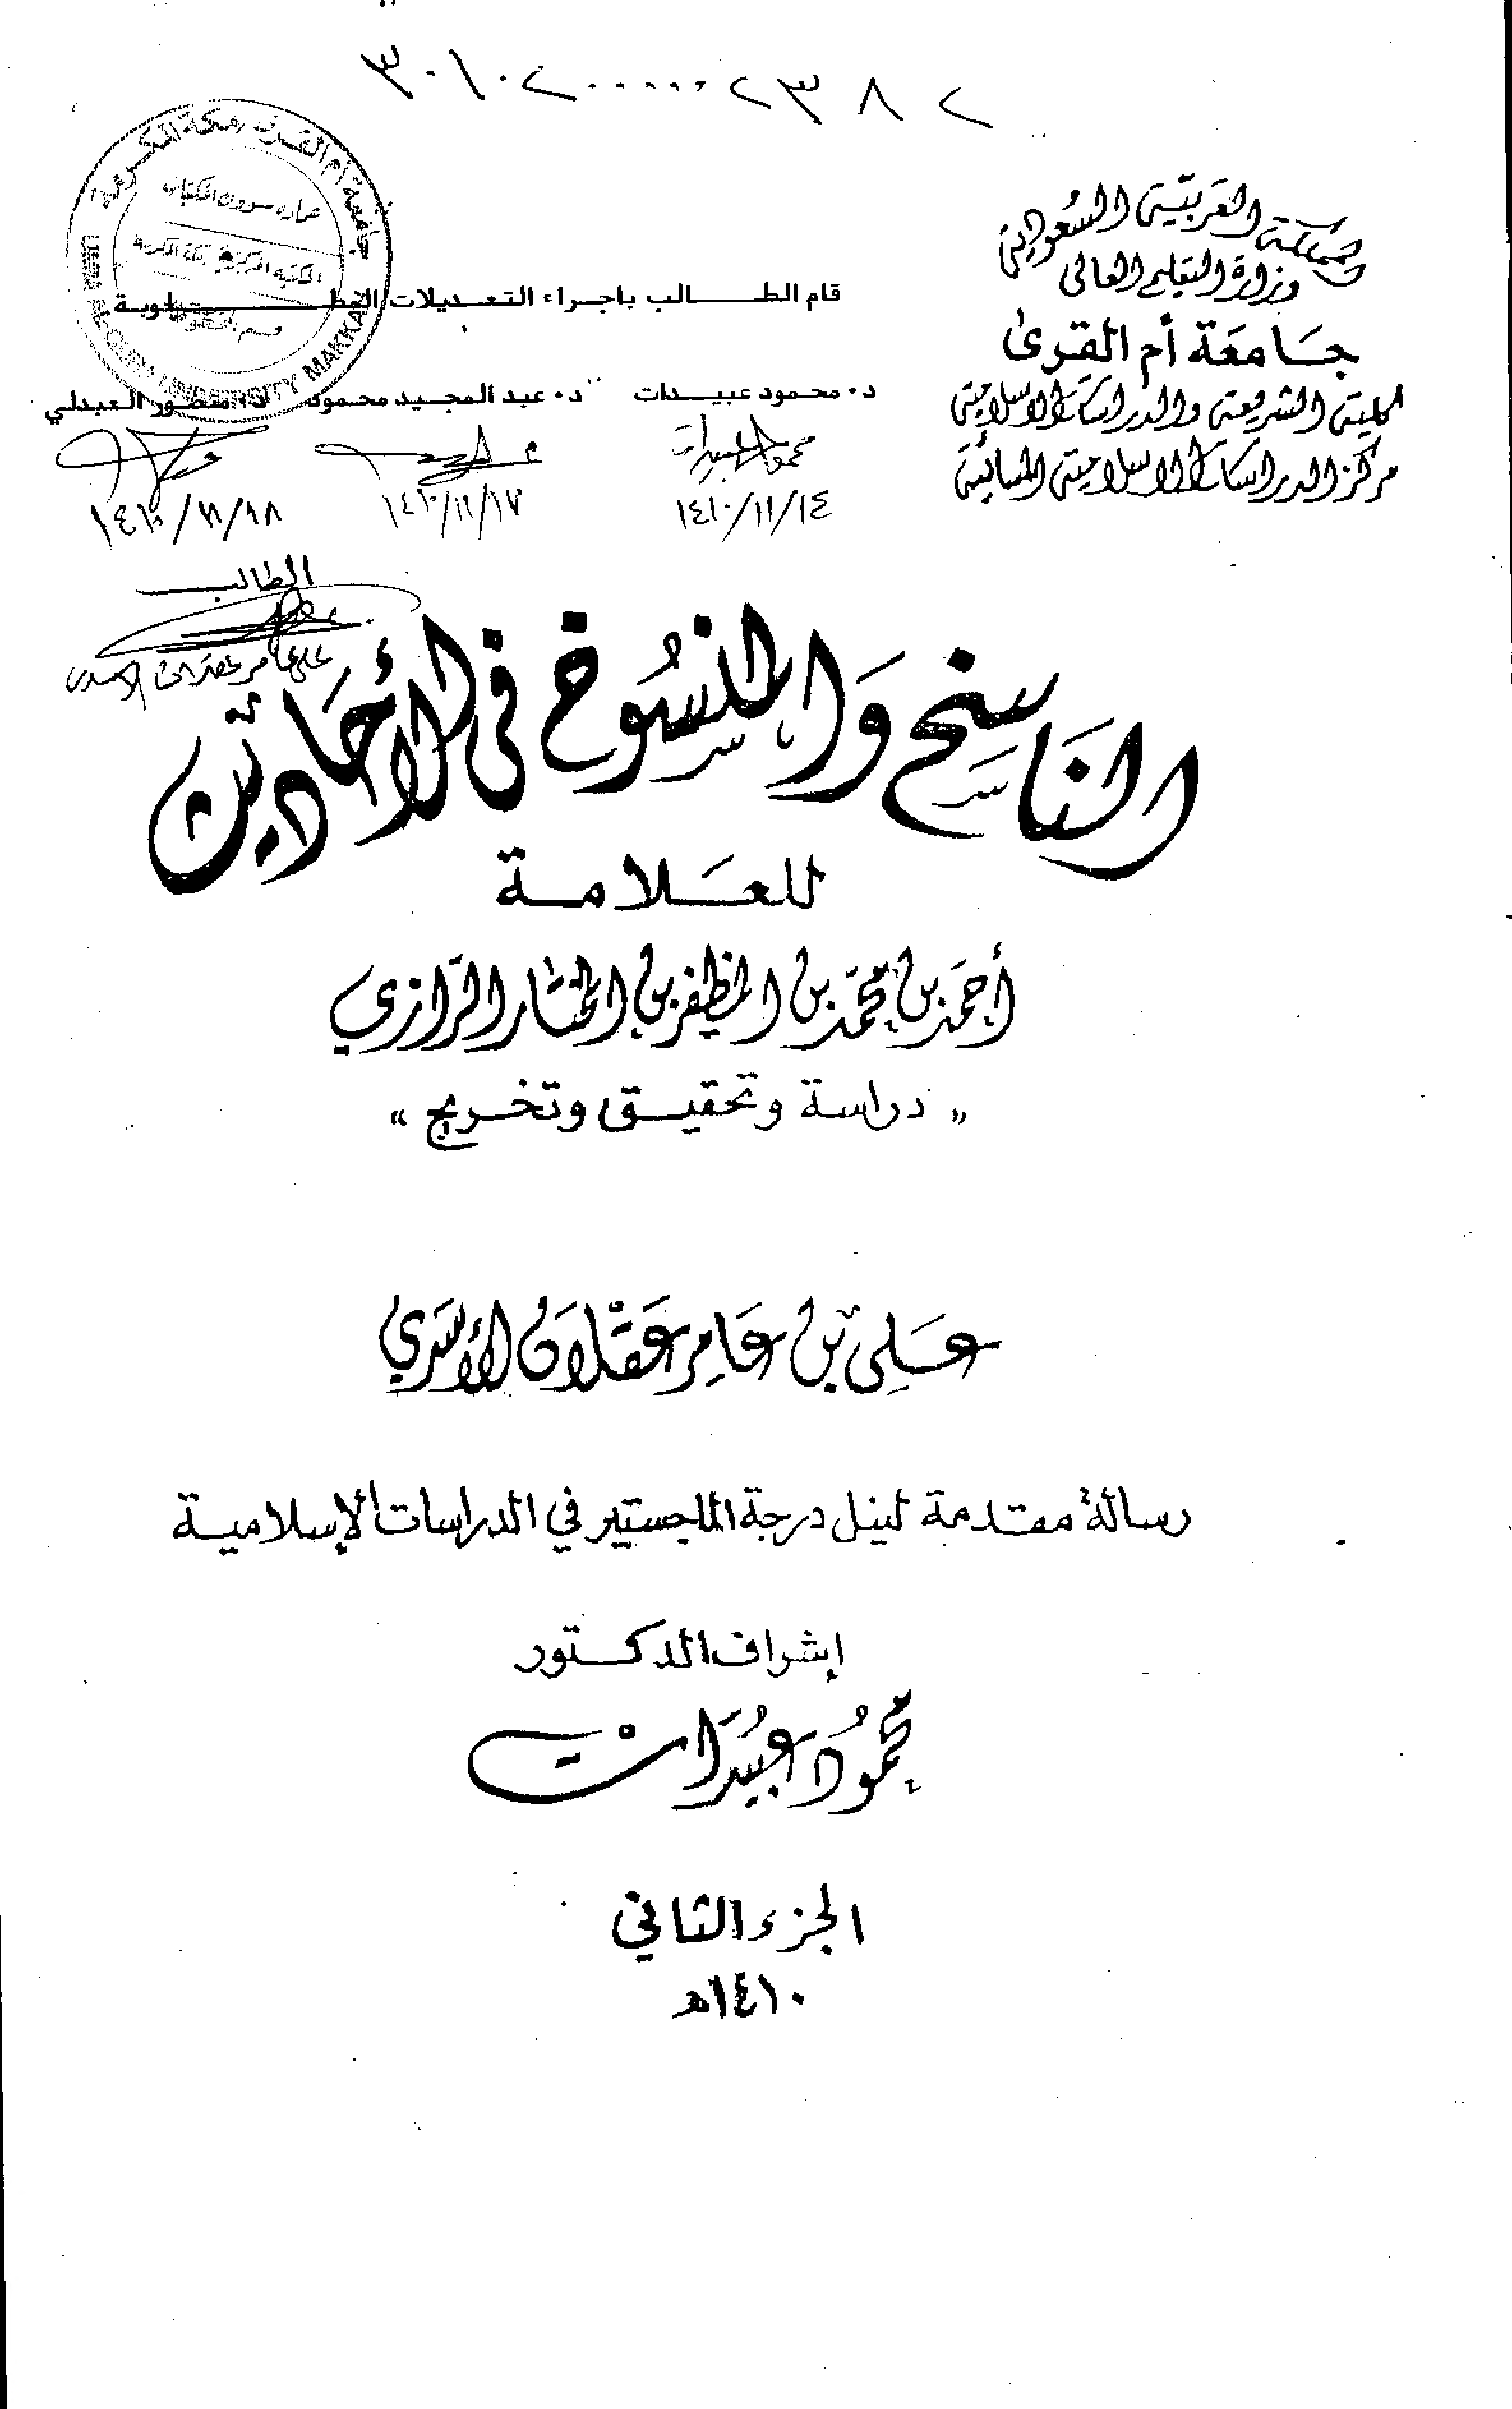 ٣٠١٠٢٠٠٠٠٠٢٣٨٢
المملكة العربية السعودية
وزارة التعليم العالي
جامعة أم القرى
كلية الشريعة والدراسات الإسلامية
مركز الدراسات الإسلامية المسائية
جامعة أم القرى مكة المكرمة
عمادة شؤون المكتبات
المكتبة المركزية بمكة المكرمة
UNIVERSITY MAKKAH
قام الطالب باجراء التعديلات المطلوبة
د. محمود عبيدات د. عبد المجيد محمود د. منصور العبدلي
محمود عبيدات
١٤١٠/١١/١٤ ١٤١٠/١١/١٧ ١٤١٠/١١/١٨
الطالب
علي عامر عقلان الأسدي
الناسخ والمنسوخ في الأحاديث
للعلامة
أحمد بن محمد بن المظفر بن المختار الرازي
« دراسة وتحقيق وتخريج »
علي بن عامر عقلان الأسدي
رسالة مقدمة لنيل درجة الماجستير في الدراسات الإسلامية
إشراف الدكتور
محمود عبيدات
الجزء الثاني
١٤١٠هـ